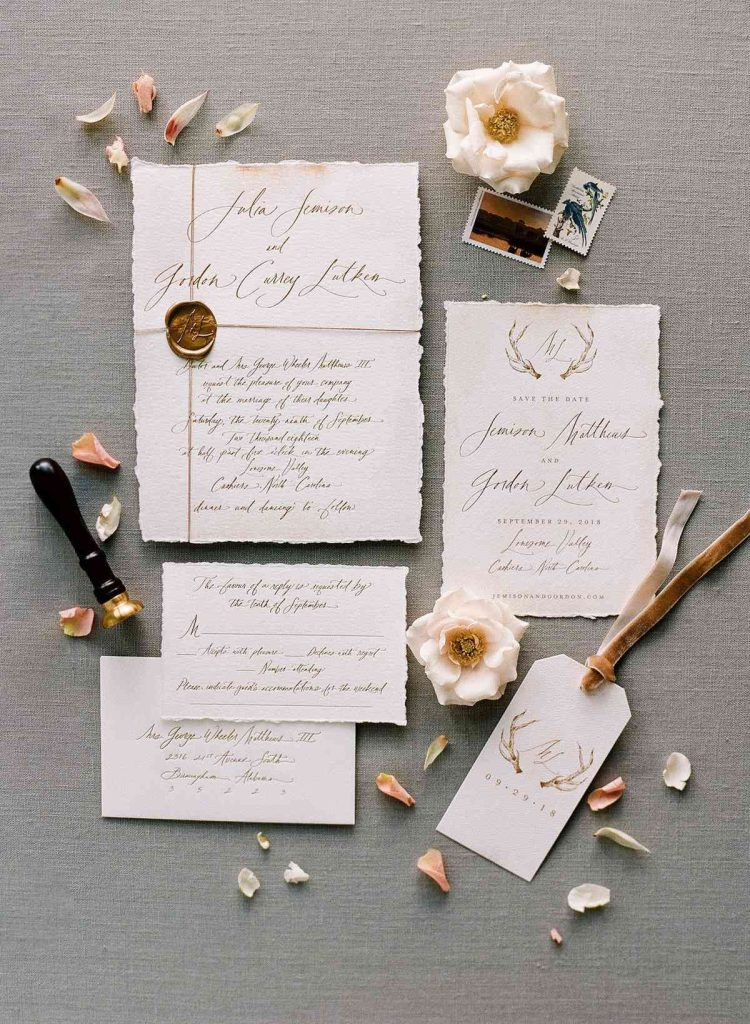 Julia Jemison
and
Gordon Currey Lutken
Doctor and Mrs. George Wheeler Matthews III
request the pleasure of your company
at the marriage of their daughter
Saturday, the twenty ninth of September
Two thousand eighteen
at half past five o'clock in the evening
Lonesome Valley
Cashiers North Carolina
dinner and dancing to follow
ML
SAVE THE DATE
Jemison Matthews
AND
Gordon Lutken
SEPTEMBER 29, 2018
Lonesome Valley
Cashiers North Carolina
JEMISONANDGORDON.COM
The favour of a reply is requested by
the tenth of September
M
Accepts with pleasure Declines with regret
Number attending
Please indicate guests accommodations for the weekend
Mrs. George Wheeler Matthews III
2316 21st Avenue South
Birmingham Alabama
35223
ML
09·29·18